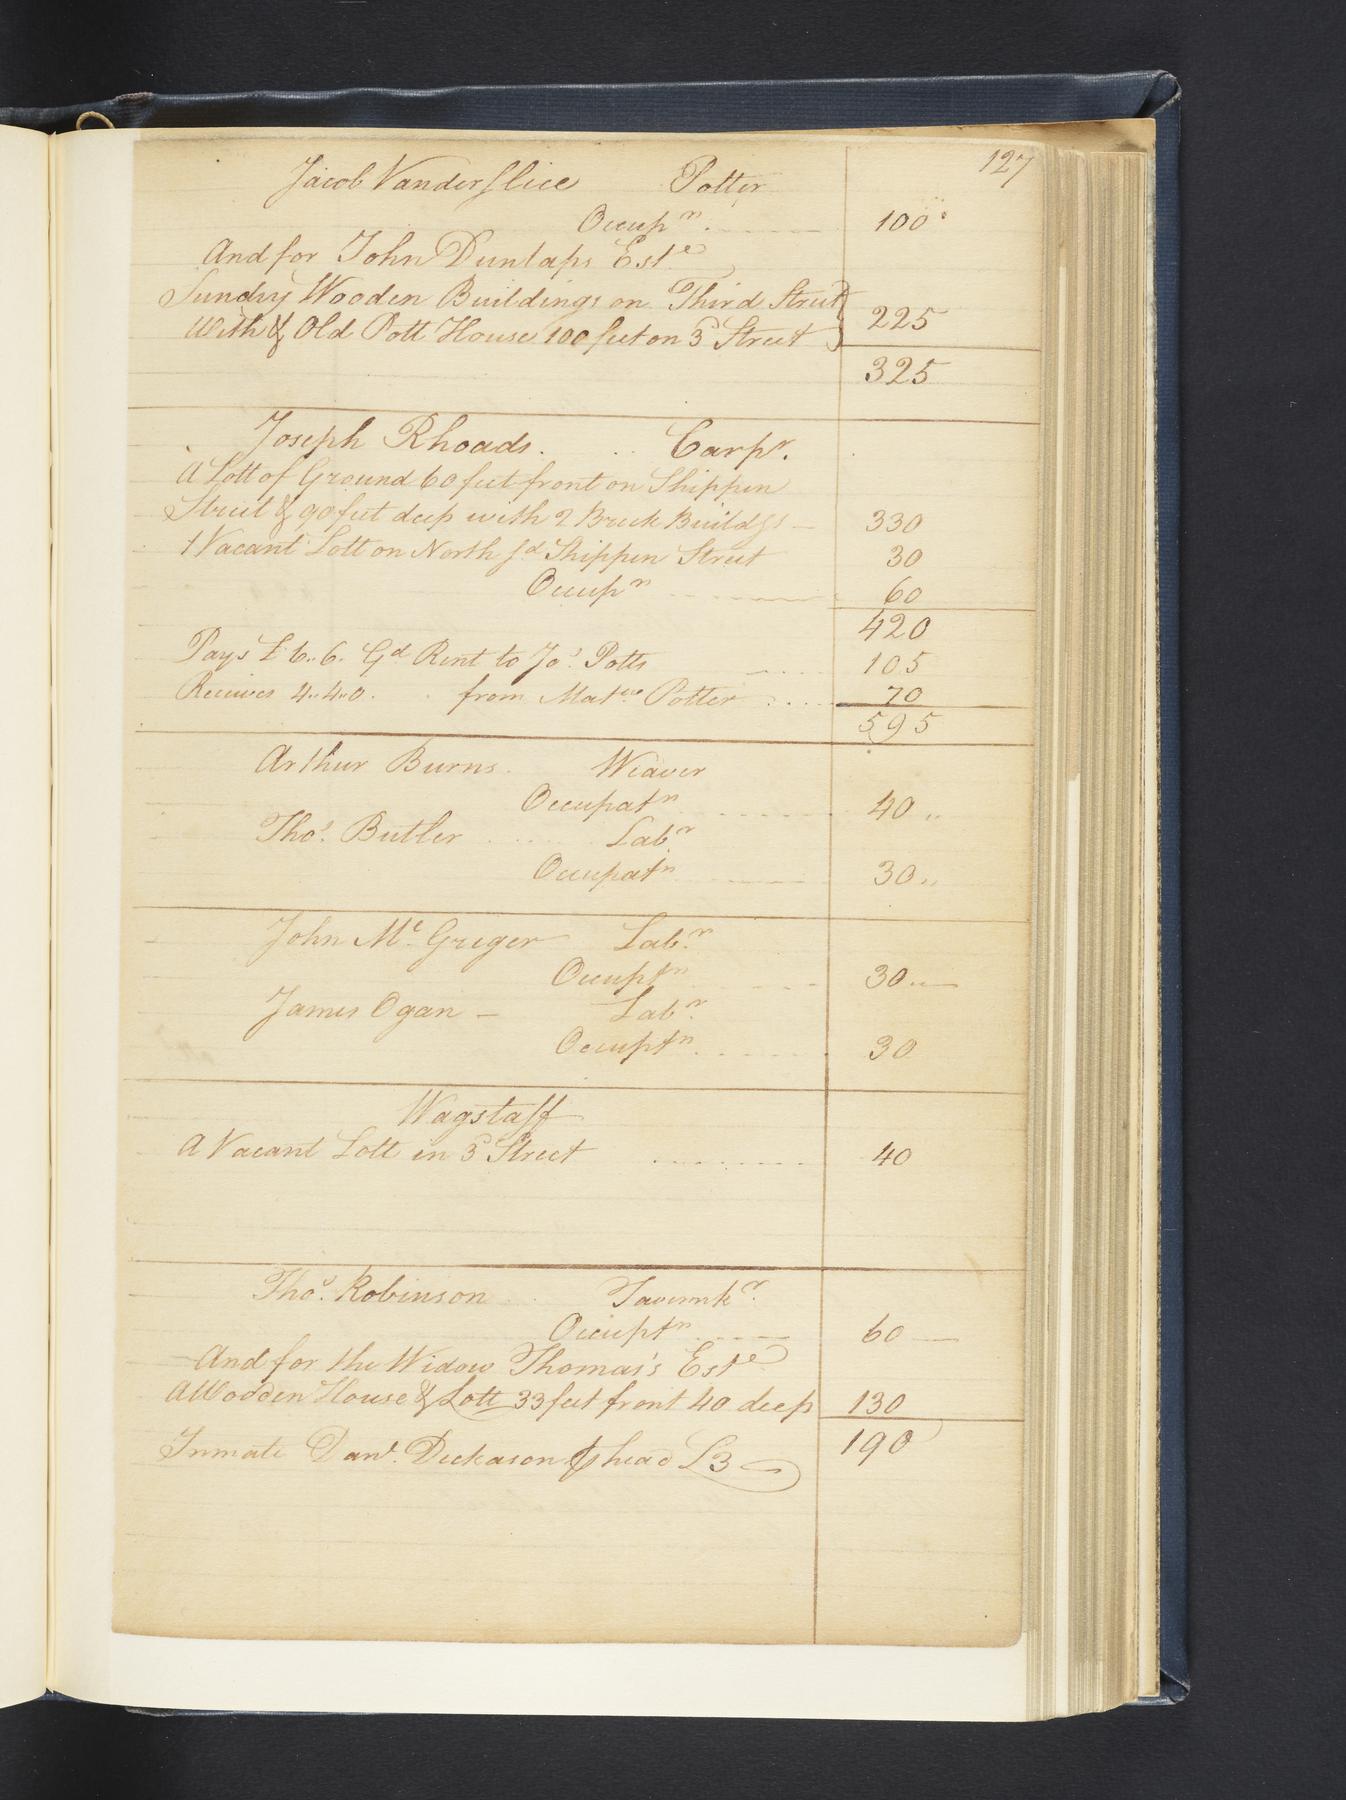 127
Jacob Vanderslice Potter
Occupn. 100
And for John Dunlaps Este
Sundry Wooden Buildings on Third Street
With & Old Pott House 100 feet on 3d Street 225
325
Joseph Rhoads. Carpr.
A Lott of Ground 60 feet front on Shippen
Street & 90 feet deep with 2 Brick Buildgs — 330
1 Vacant Lott on North sd Shippen Street 30
Occupn 60
420
Pays £6..6. Gd Rent to Jos. Potts 105
Receives 4..4..0. from Potter 70
595
Arthur Burns. Weaver
Occupatn 40 ..
Thos. Butler Labr
Occupatn 30 ..
John Mc. Greger Labr.
Occuptn 30 ..—
James Ogan — Labr.
Occuptn 30
Wagstaff
A Vacant Lott in 3d Street 40
Thos. Robinson Tavernkr.
Occuptn 60 —
And for the Widow Thomas's Este
A Wooden House & Lott 33 feet front 40 deep 130
190
Inmate Danl. Dickason ⅌ head £3